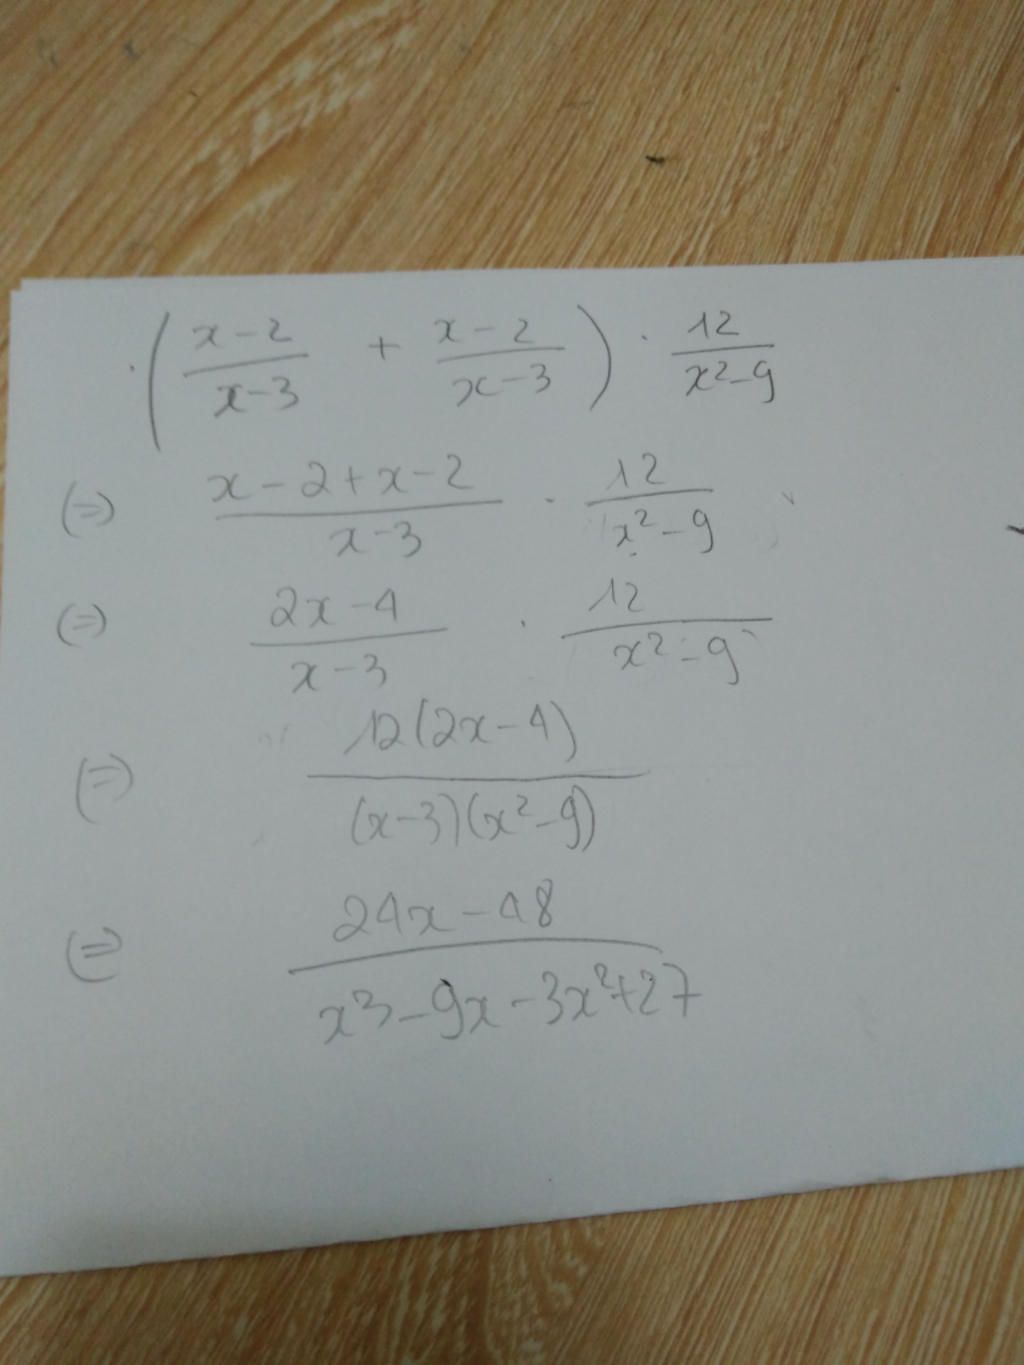 . ( (x-2)/(x-3) + (x-2)/(x-3) ) . 12/(x²-9)
(=) (x-2+x-2)/(x-3) . 12/(x²-9)
(=) (2x-4)/(x-3) . 12/(x²-9)
(=) 12(2x-4)/((x-3)(x²-9))
(=) (24x-48)/(x³-9x-3x²+27)